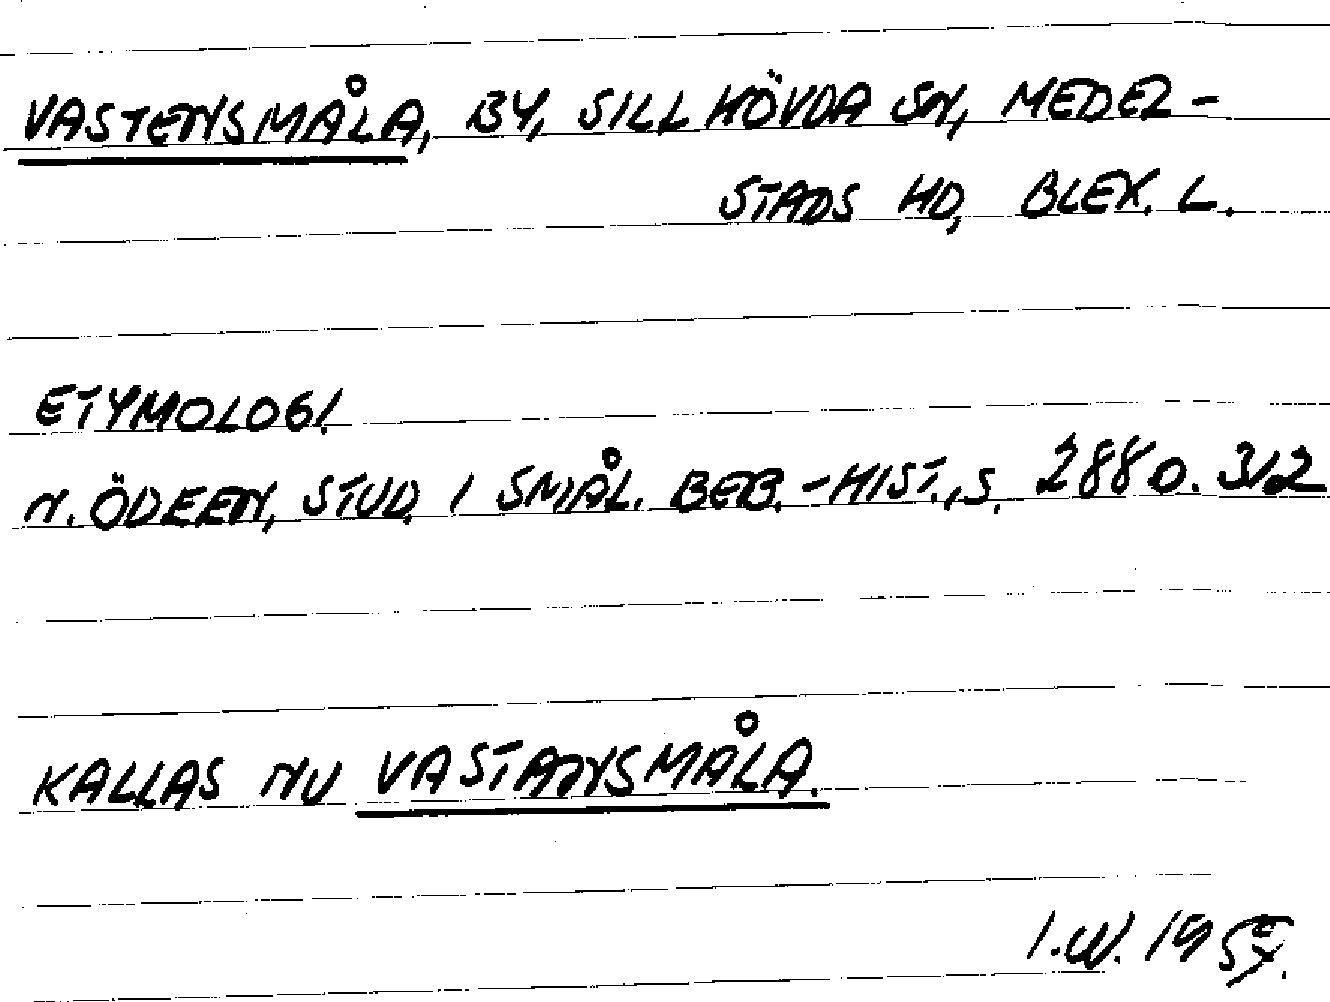 VASTENSMÅLA, BY, SILLHÖVDA SN, MEDEL-
STADS HD, BLEK. L.
ETYMOLOGI.
N. ÖDEEN, STUD. I SMÅL. BEB.-HIST., S. 288 O. 312
KALLAS NU VASTANSMÅLA.
I.W. 1957.